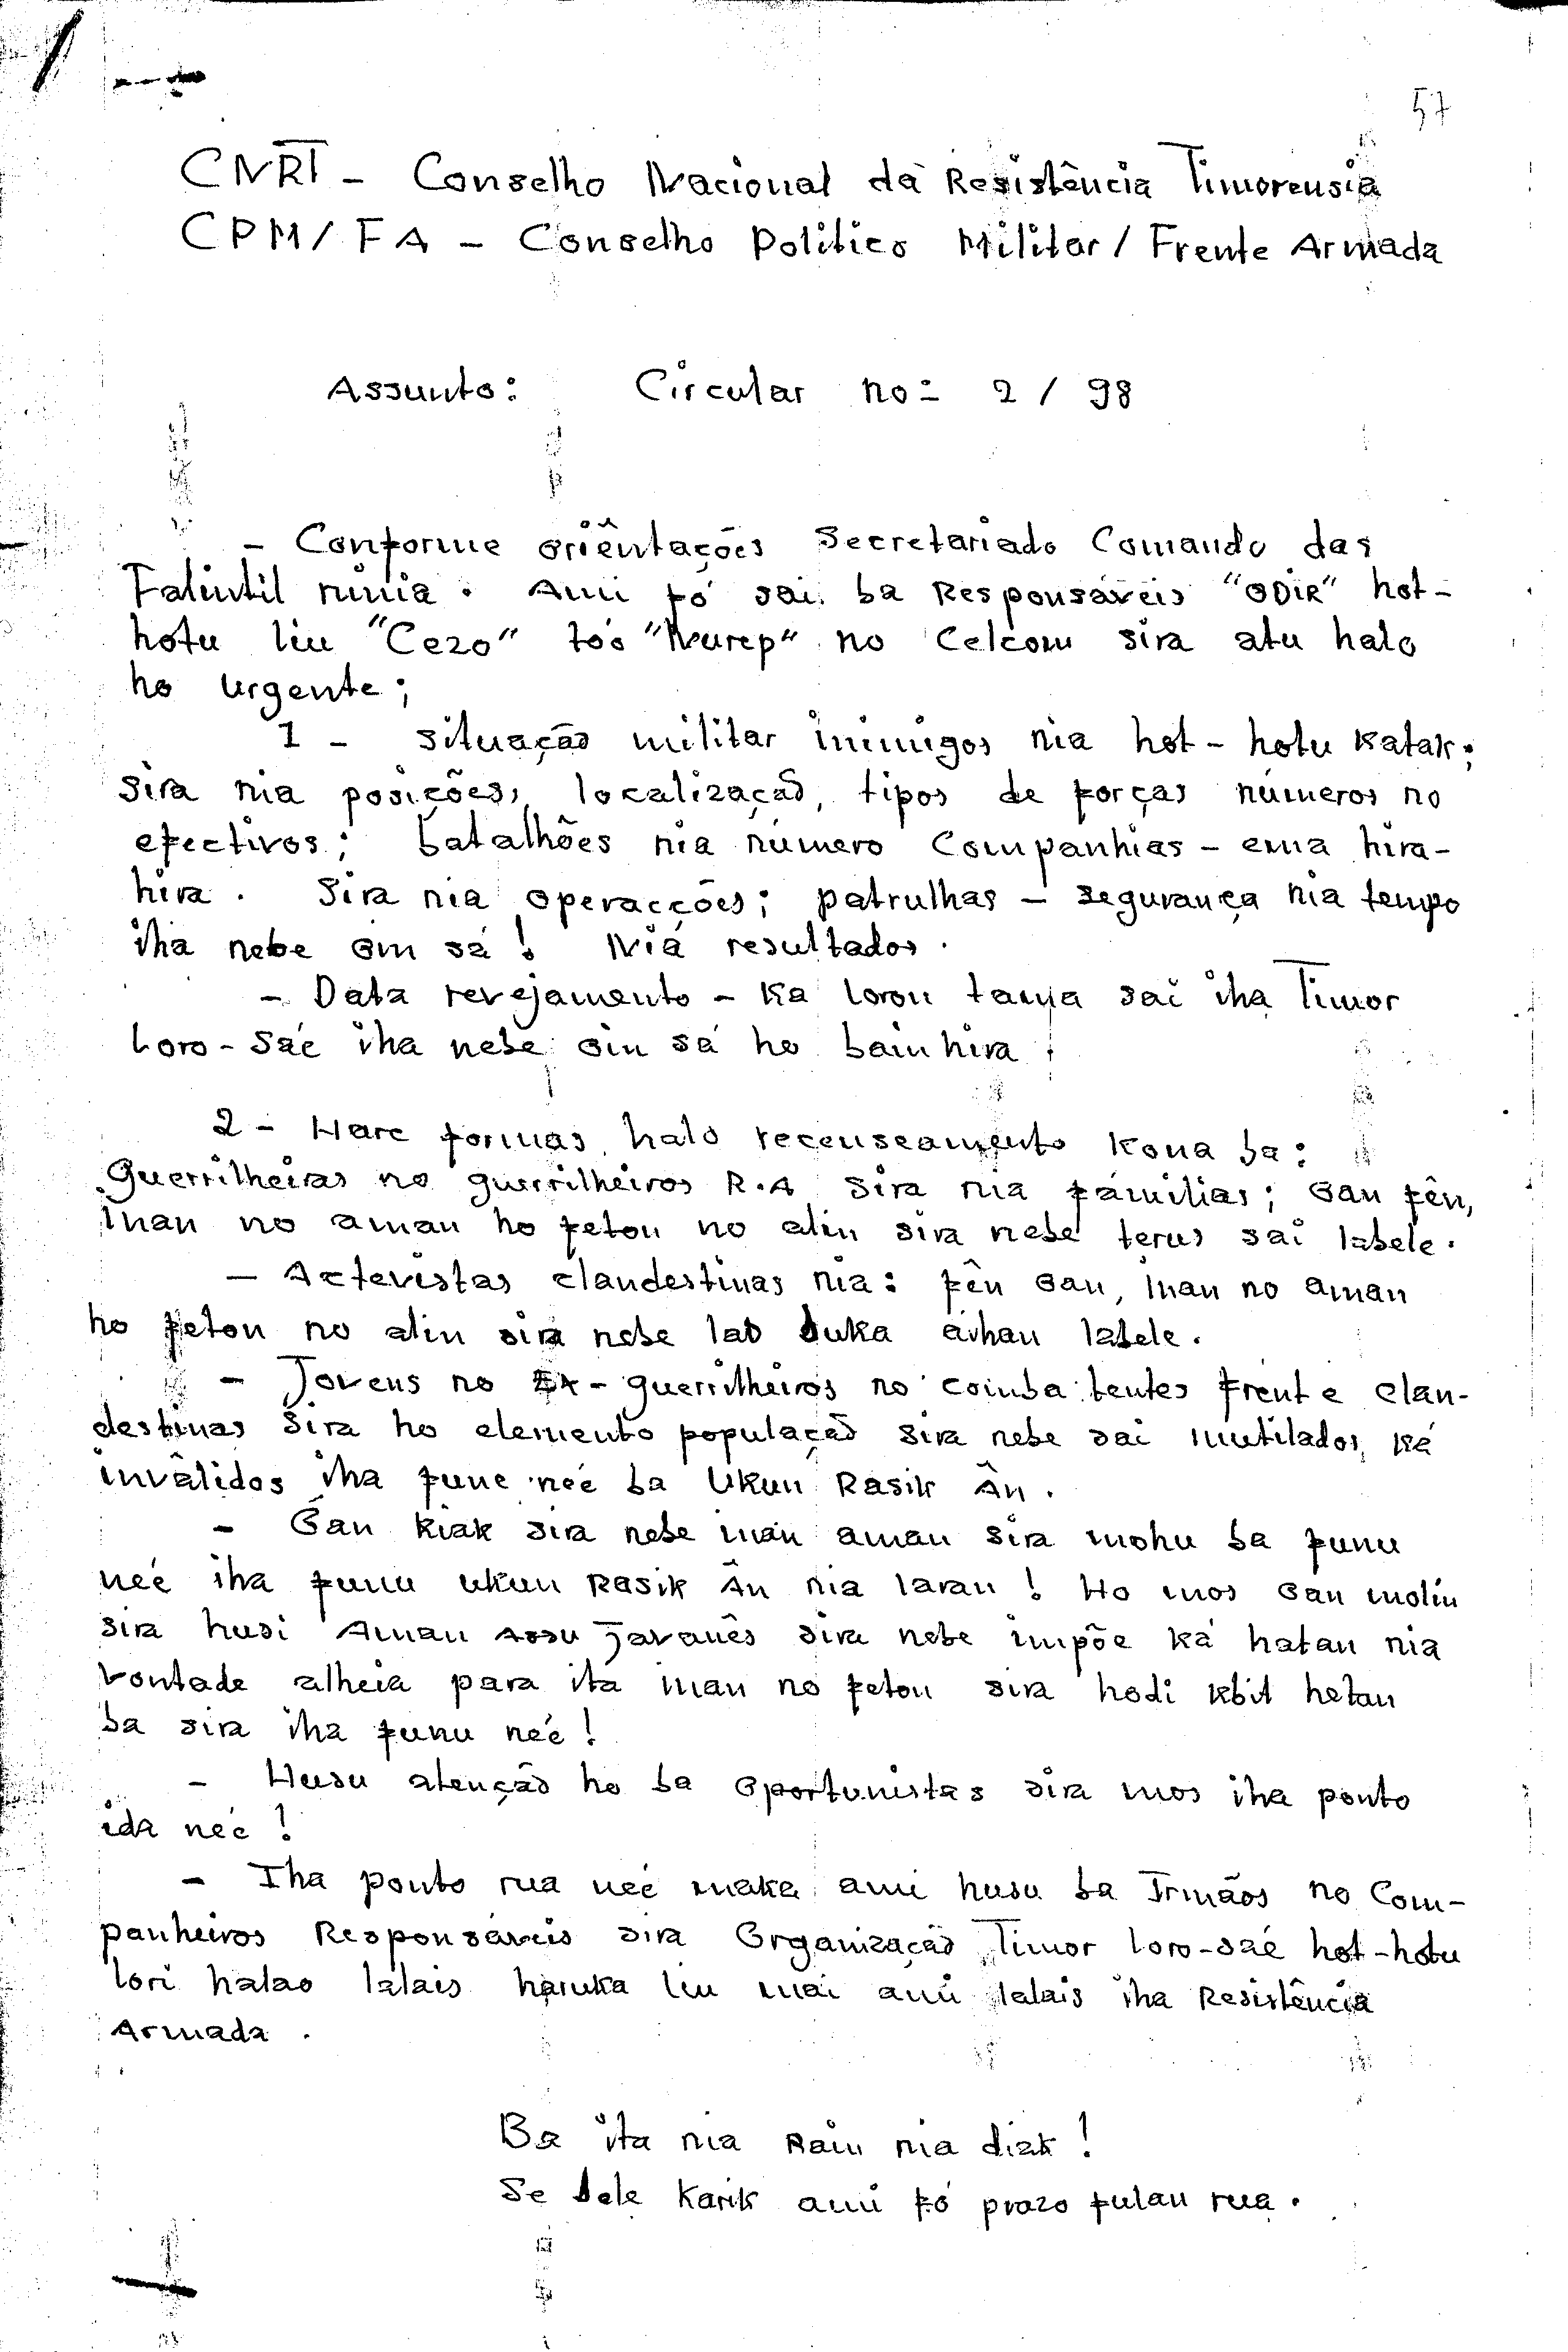 57
CNRT - Conselho Nacional da Resistência Timorensia
CPM/FA - Conselho Politico Militar / Frente Armada
Assunto: Circular no= 2 / 98
- Conforme oriêntações Secretariado Comando das
Falintil ninia. Ami fó sai ba Responsáveis "ODIR" hot-
hotu liu "Cezo" tóo "Nurep" no Celcom sira atu halo
ho urgente;
1 - situação militar inimigos nia hot-hotu katak;
sira nia posições, localização, tipos de forças números no
efectivos; batalhões nia número Companhias - ema hira-
hira. Sira nia operacções; patrulhas - segurança nia tempo
iha nebe oin sá! Niá resultados.
- Data revejamento - ka loron tama sai iha Timor
Loro-Sáe iha nebe oin sá ho bainhira.
2 - Hare formas halo recenseamento kona ba:
Guerrilheiras no guerrilheiros R.A sira nia fámilias; oan fên,
inan no aman ho feton no alin sira nebe terus sai labele.
- Actevistas clandestinas nia: fên oan, inan no aman
ho feton no alin sira nebe lao buka áihan labele.
- Jovens no Ex-guerrilheiros no comba tentes frente clan-
destinas sira ho elemento população sira nebe sai mutilados, ká
inválidos iha fune neé ba Ukun Rasik Ân.
- Oan kiak sira nebe inan aman sira mohu ba funu
neé iha funu ukun Rasik Ân nia laran! Ho mos oan molin
sira husi Aman Assu Javanês sira nebe impõe ká hatan nia
vontade alheia para ita inan no feton sira hodi kbit hetan
ba sira iha funu neé!
- Husu atenção ho ba oportunistas sira mos iha ponto
ida neé!
- Iha ponto rua neé maka ami husu ba Irmãos no Com-
panheiros Responsáveis sira Organização Timor loro-sáe hot-hotu
lori halao lalais haruka liu mai ami lalais iha Resistência
Armada.
Ba ita nia Rain nia diak!
Se bele karik ami fó prazo fulan rua.